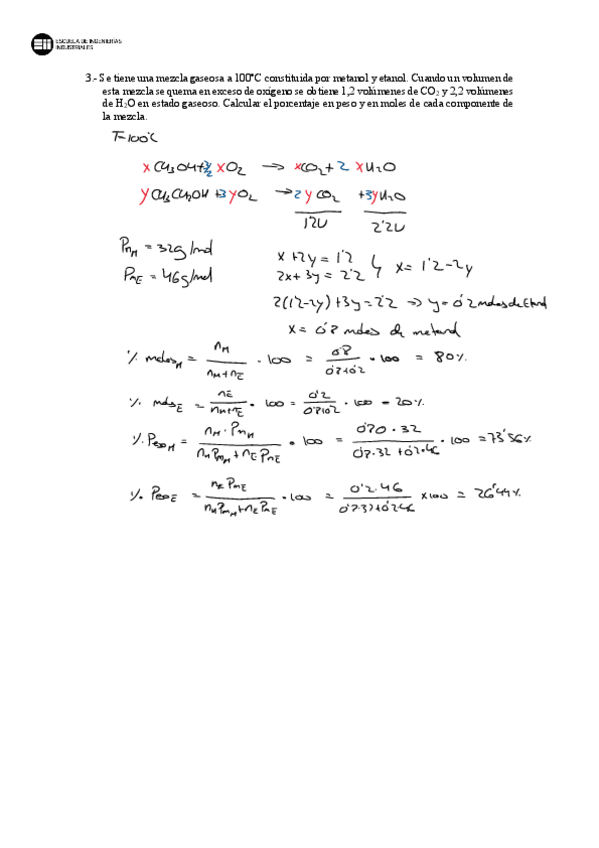 ESCUELA DE INGENIERÍAS
INDUSTRIALES
3.- Se tiene una mezcla gaseosa a 100°C constituida por metanol y etanol. Cuando un volumen de
esta mezcla se quema en exceso de oxígeno se obtiene 1,2 volúmenes de CO2 y 2,2 volúmenes
de H2O en estado gaseoso. Calcular el porcentaje en peso y en moles de cada componente de
la mezcla.
T=100°C
x CH3OH + 3/2 x O2 → x CO2 + 2 x H2O
y CH3CH2OH + 3 y O2 → 2 y CO2 + 3 y H2O
1'2U 2'2U
PmM = 32g/mol
PmE = 46g/mol
x + 2y = 1'2
2x + 3y = 2'2 } x = 1'2 - 2y
2(1'2-2y) + 3y = 2'2 ⇒ y = 0'2 moles de Etanol
x = 0'8 moles de metanol
% molesM = nM / (nM + nE) · 100 = 0'8 / (0'8+0'2) · 100 = 80%
% molesE = nE / (nM + nE) · 100 = 0'2 / (0'8+0'2) · 100 = 20%
% PesoM = nM · PmM / (nM PmM + nE PmE) · 100 = 0'80 · 32 / (0'8·32 + 0'2·46) · 100 = 73'56%
% PesoE = nE PmE / (nM PmM + nE PmE) · 100 = 0'2 · 46 / (0'8·32+0'2·46) x100 = 26'44%